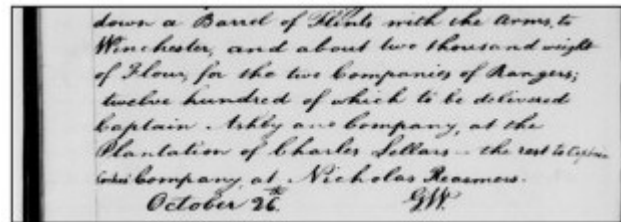 down a Barrel of Flints with the Arms, to
Winchester, and about two thousand weight
of Flour, for the two Companies of Rangers;
twelve hundred of which to be delivered
Captain Ashby and Company, at the
Plantation of Charles Sellars - the rest to Captain
Cockes Company, at Nicholas Reasmers.
October 26th. GW.